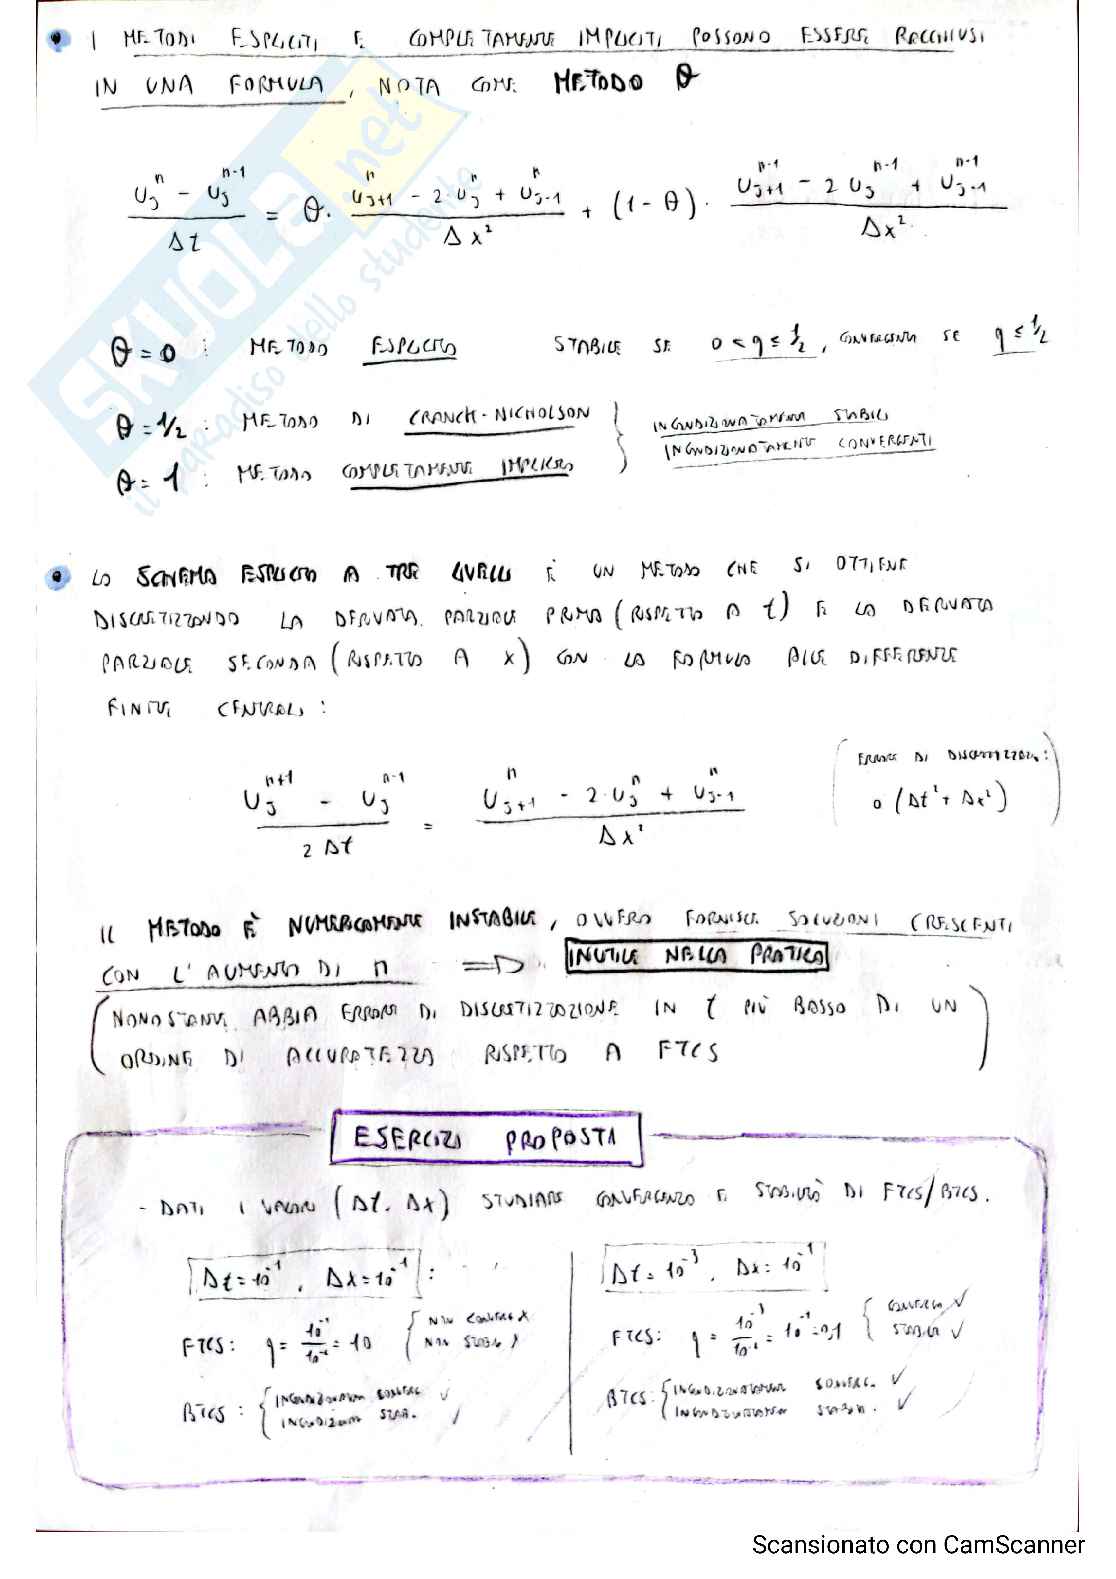 I METODI ESPLICITI E COMPLETAMENTE IMPLICITI POSSONO ESSERE RACCHIUSI
IN UNA FORMULA, NOTA COME METODO θ
(U_j^n - U_j^{n-1}) / Δt = θ · (U_{j+1}^n - 2·U_j^n + U_{j-1}^n) / Δx² + (1-θ) · (U_{j+1}^{n-1} - 2 U_j^{n-1} + U_{j-1}^{n-1}) / Δx²
θ=0 : METODO ESPLICITO STABILE SE 0 < q ≤ 1/2, CONVERGENTE SE q ≤ 1/2
θ=1/2 : METODO DI CRANCK-NICHOLSON } INCONDIZIONATAMENTE STABILI
θ=1 : METODO COMPLETAMENTE IMPLICITO } INCONDIZIONATAMENTE CONVERGENTI
LO SCHEMA ESPLICITO A TRE LIVELLI È UN METODO CHE SI OTTIENE
DISCRETIZZANDO LA DERIVATA PARZIALE PRIMA (RISPETTO A t) E LA DERIVATA
PARZIALE SECONDA (RISPETTO A x) CON LA FORMULA ALLE DIFFERENZE
FINITE CENTRALI :
(U_j^{n+1} - U_j^{n-1}) / 2Δt = (U_{j+1}^n - 2·U_j^n + U_{j-1}^n) / Δx²
(ERRORE DI DISCRETIZZAZ. :
o (Δt² + Δx²))
IL METODO È NUMERICAMENTE INSTABILE, OVVERO FORNISCE SOLUZIONI CRESCENTI
CON L'AUMENTO DI n => INUTILE NELLA PRATICA
(NONOSTANTE ABBIA ERRORE DI DISCRETIZZAZIONE IN t PIÙ BASSO DI UN
ORDINE DI ACCURATEZZA RISPETTO A FTCS)
ESERCIZI PROPOSTI
- DATI I VALORI (Δt, Δx) STUDIARE CONVERGENZA E STABILITÀ DI FTCS/BTCS.
Δt=10^-1, Δx=10^-1 :
FTCS: q = 10^-1/10^-2 = 10 { NON CONVERG X
NON STAB. X
BTCS : { INCONDIZIONATAM CONVERG. ✓
INCONDIZION STAB. ✓
Δt=10^-3, Δx=10^-1
FTCS: q = 10^-3/10^-2 = 10^-1 = 0,1 { CONVERG. ✓
STABILE ✓
BTCS: { INCONDIZIONATAMEN CONVERG. ✓
INCONDIZIONATAMEN STABIL. ✓
SKUOLA.net
il paradiso dello studente
Scansionato con CamScanner